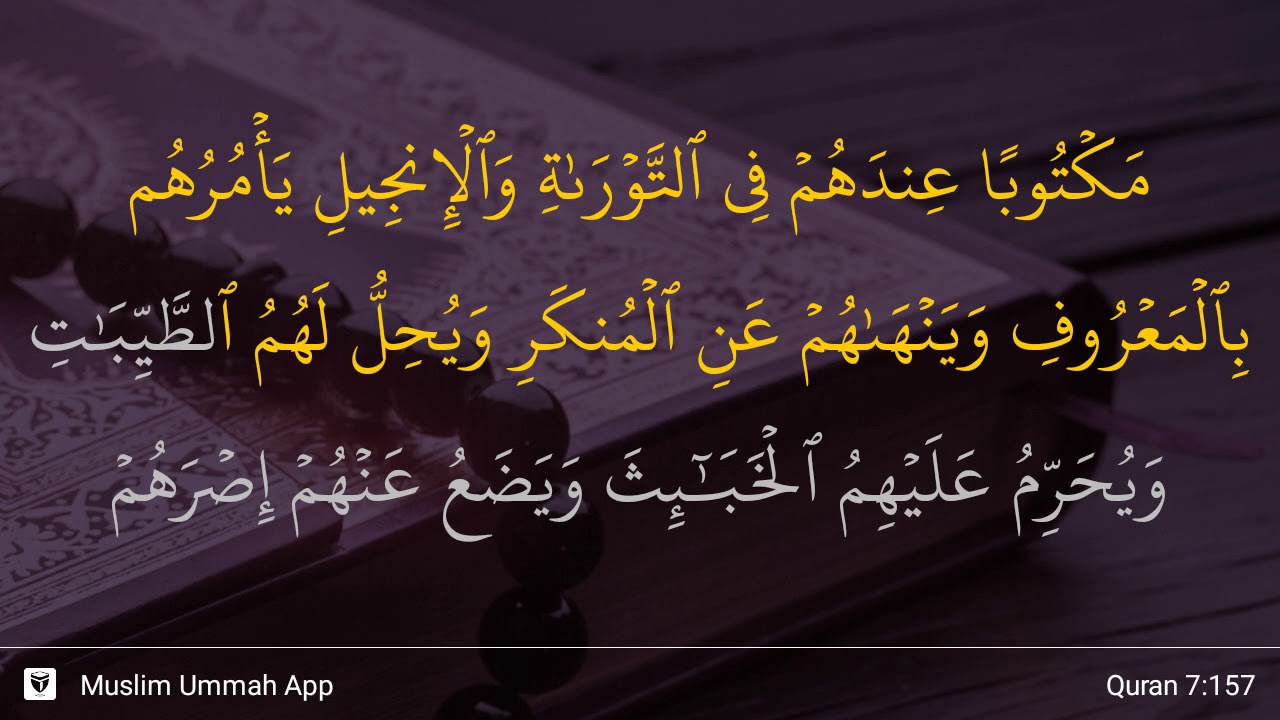 مَكْتُوبًا عِندَهُمْ فِى ٱلتَّوْرَىٰةِ وَٱلْإِنجِيلِ يَأْمُرُهُم
بِٱلْمَعْرُوفِ وَيَنْهَىٰهُمْ عَنِ ٱلْمُنكَرِ وَيُحِلُّ لَهُمُ ٱلطَّيِّبَـٰتِ
وَيُحَرِّمُ عَلَيْهِمُ ٱلْخَبَـٰٓئِثَ وَيَضَعُ عَنْهُمْ إِصْرَهُمْ
Muslim Ummah App
Quran 7:157